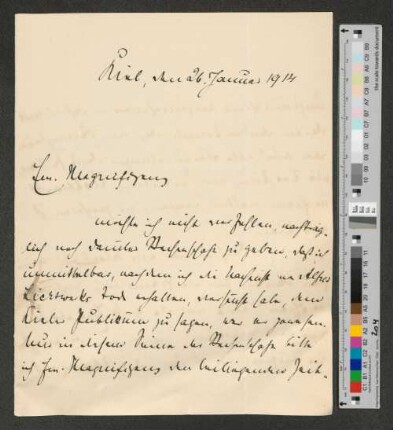 Kiel, den 26. Januar 1914
Ew. Magnifizenz
möchte ich nicht verfehlen, nachträg-
lich noch davon Rechenschaft zu geben, daß ich
unmittelbar, nachdem ich die Nachricht von Alfred
Lichtwarks Tod erhalten, versucht habe, dem
Kieler Publikum zu sagen, wer er gewesen.
in diesem Sinne der Rechenschaft bitte
ich Ew. Magnifizenz den beiliegenden Zeit-